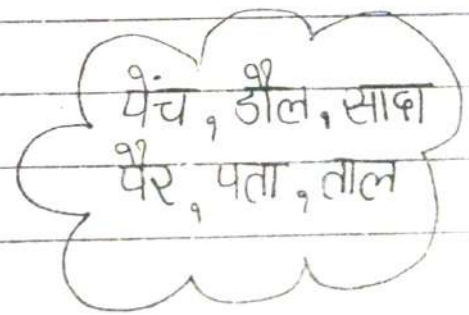 पेंच, डौल, सादा
पैर, पता, ताल